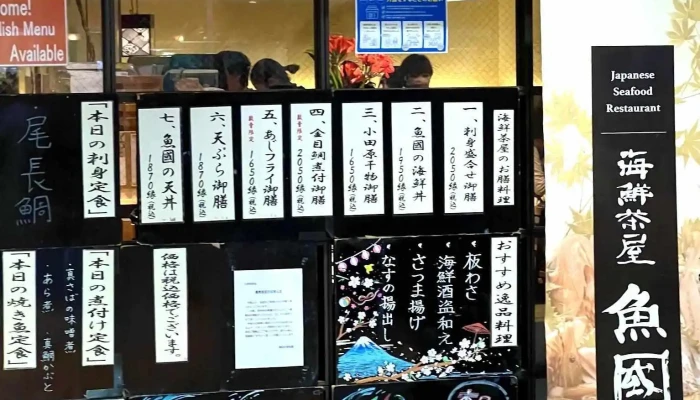 ome!
lish Menu
Available
Japanese
Seafood
Restaurant
海鮮茶屋
魚國
海鮮茶屋のお膳料理
一、刺身盛合せ御膳
2050縁(税込)
二、魚國の海鮮丼
1950縁(税込)
三、小田原干物御膳
1650縁(税込)
四、金目鯛煮付御膳
数量限定
2050縁(税込)
五、あじフライ御膳
数量限定
1650縁(税込)
六、天ぷら御膳
1870縁(税込)
七、魚國の天丼
1870縁(税込)
「本日の刺身定食」
尾長鯛
おすすめ逸品料理
板わさ
海鮮酒盗和え
さつま揚げ
なすの揚出し
価格は税込価格でございます。
「本日の煮付け定食」
・真さばの味噌煮
・あら煮
・真鯛かぶと
「本日の焼き魚定食」